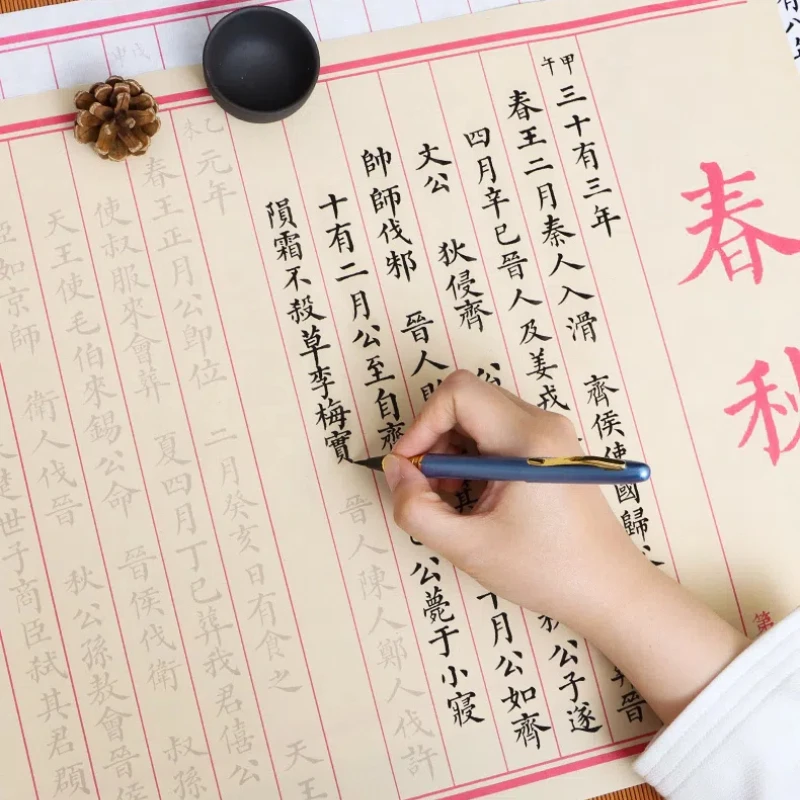 春秋
第
甲午
三十有三年
春王二月秦人入滑 齊侯使國歸父
四月辛巳晉人及姜戎 葬晉
文公 狄侵齊 公 秋公子遂
帥師伐邾 晉人敗 箕 十月公如齊
十有二月公至自齊 乙巳公薨于小寢
隕霜不殺草李梅實 晉人陳人鄭人伐許
乙未
元年
春王正月公卽位 二月癸亥日有食之 天王
使叔服來會葬 夏四月丁巳葬我君僖公
天王使毛伯來錫公命 晉侯伐衛 叔孫
臣如京師 衛人伐晉 秋公孫敖會晉侯
楚世子商臣弒其君頵